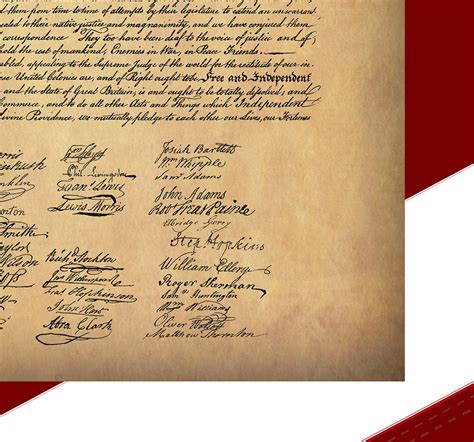 them from time to time of attempts by their legislature to extend an unwarran
to their native justice and magnanimity, and we have conjured them
correspondence They too have been deaf to the voice of justice and of
hold the rest of mankind, Enemies in War, in Peace Friends.
appealing to the Supreme Judge of the world for the rectitude of our in
United Colonies are, and of Right ought to be Free and Independent
and the State of Great Britain, is and ought to be totally dissolved, and
ommerce, and to do all other Acts and Things which Independent
ivine Providence, we mutually pledge to each other our Lives, our Fortunes
Josiah Bartlett
Phil. Livingston
Wm Whipple
Sam Adams
Lewis Morris
John Adams
Rob Treat Paine
Elbridge Gerry
Step Hopkins
William Ellery
Roger Sherman
Sam Huntington
Wm Williams
Oliver Wolcott
Matthew Thornton
Richd Stockton
Fras Hopkinson
John Hart
Abra Clark